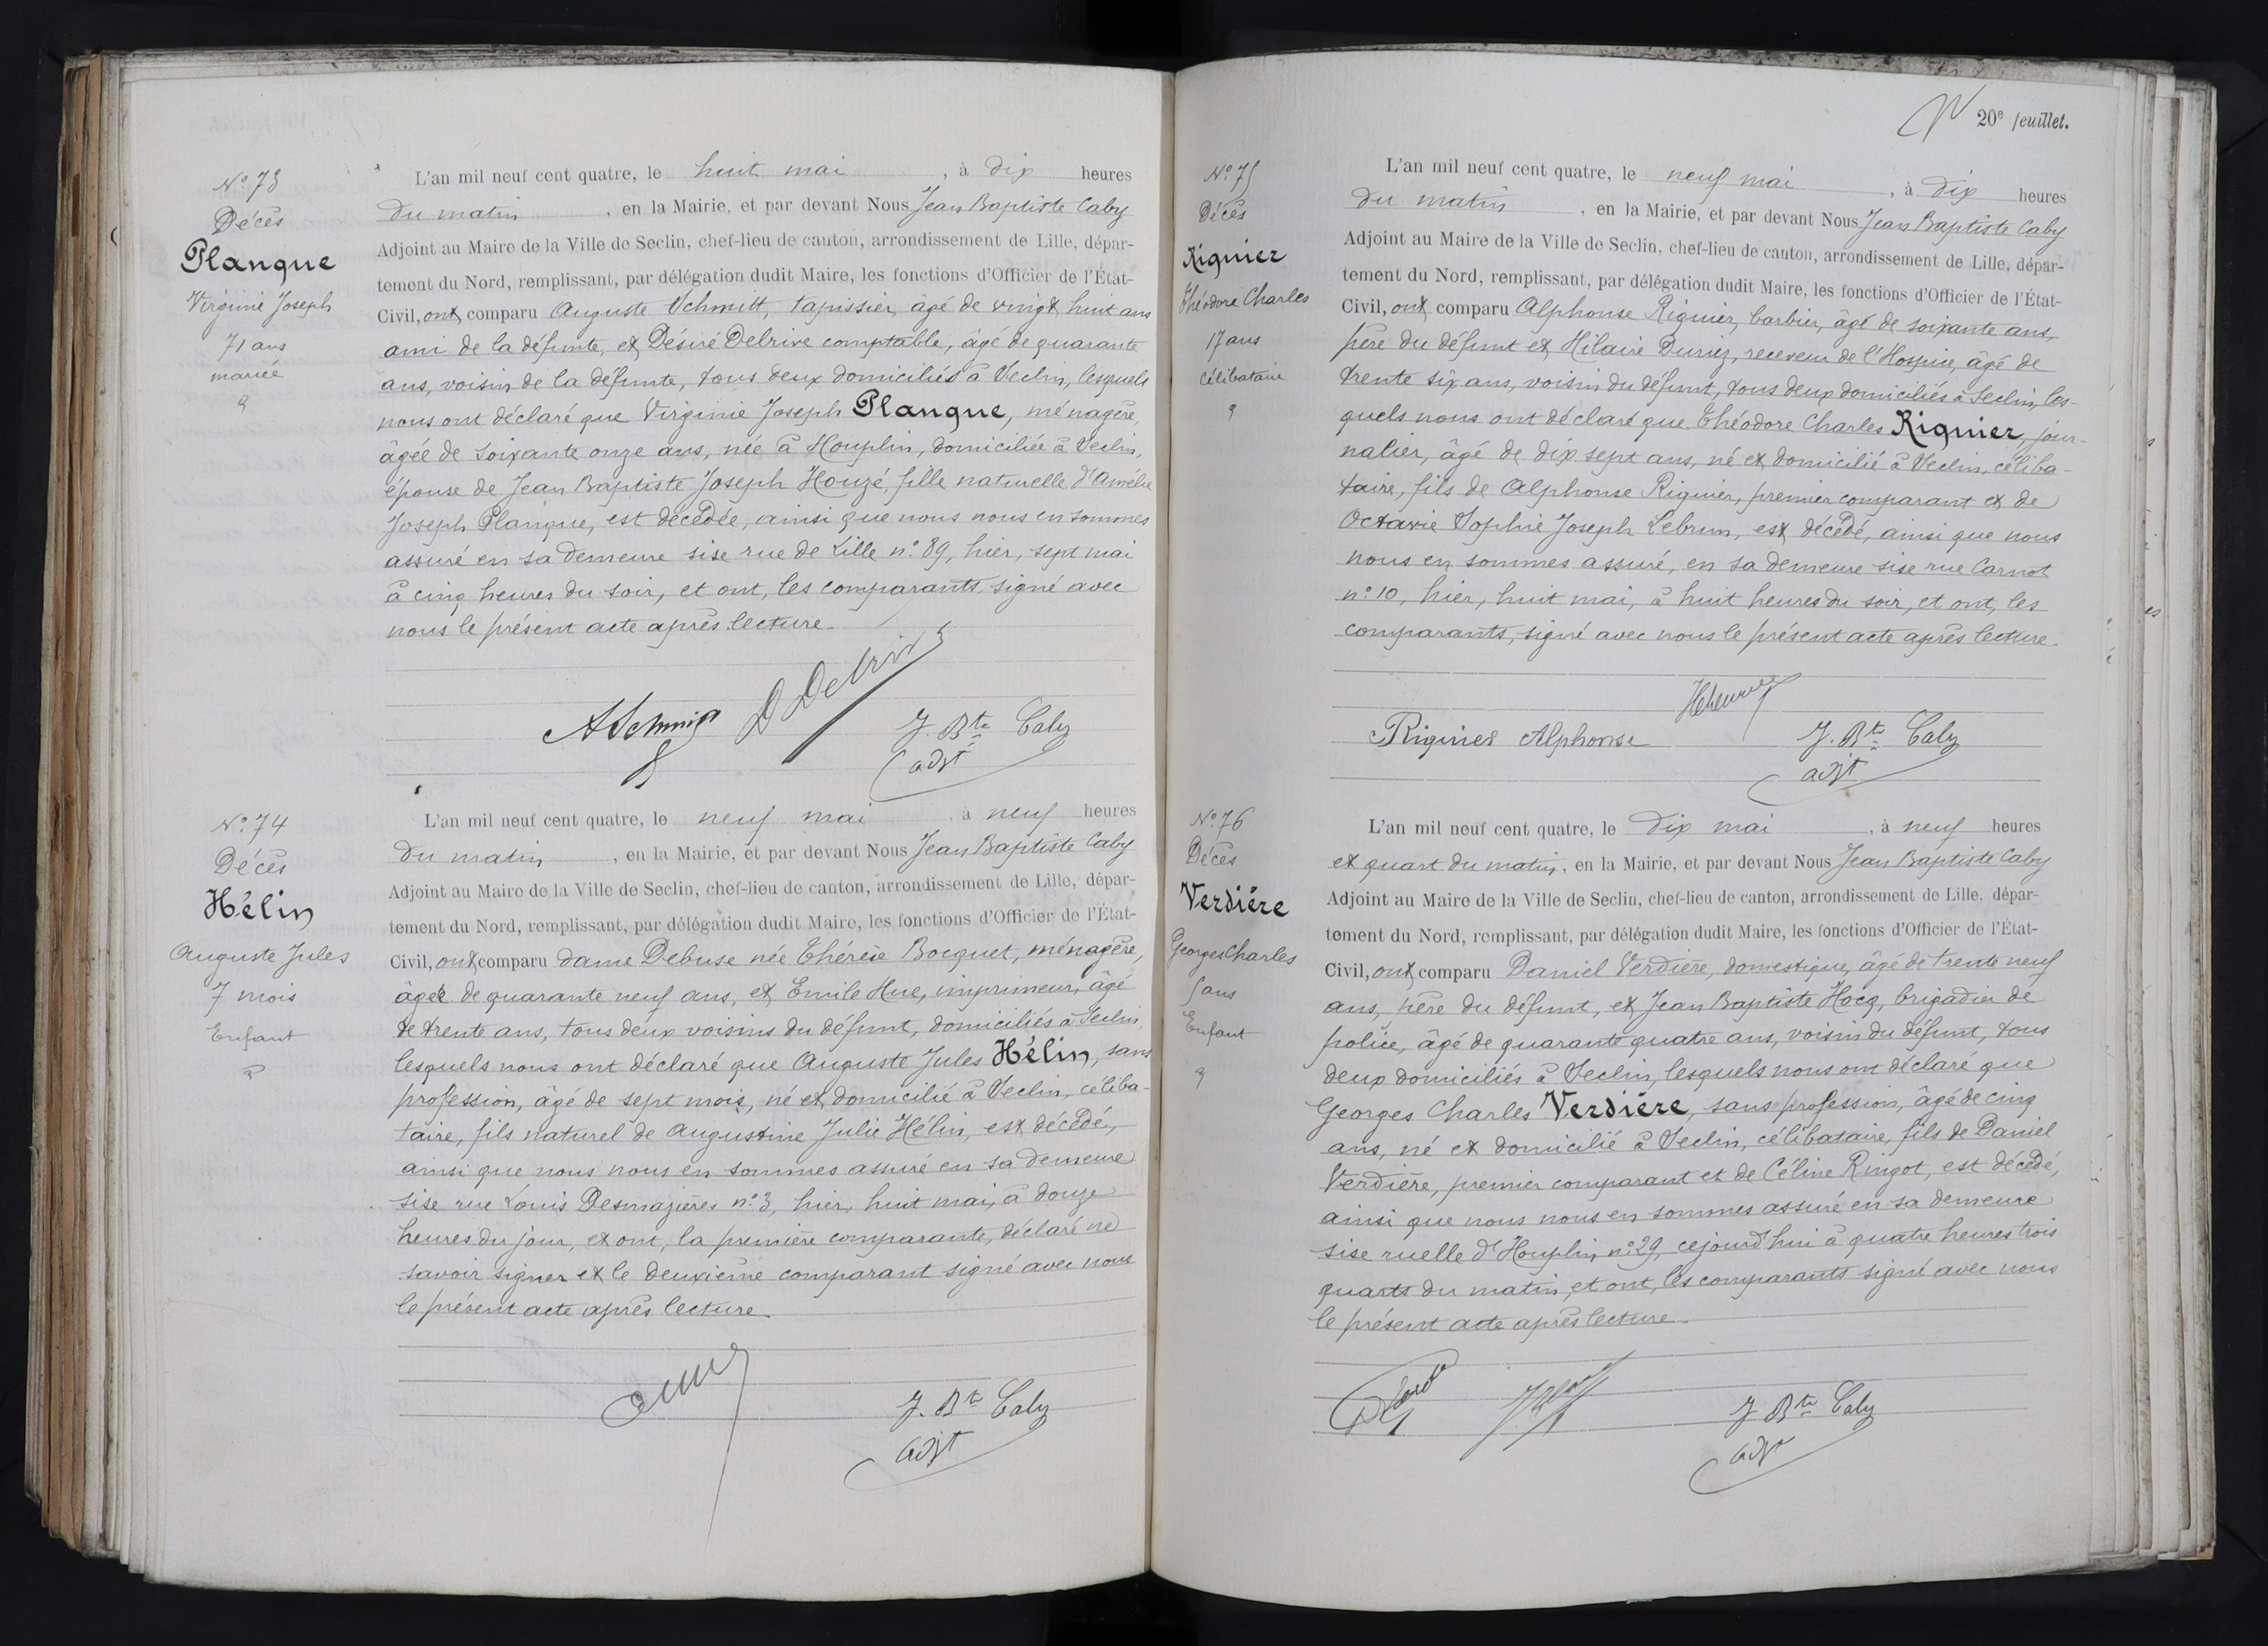 N° 73
Décès
Planque
Virginie Joseph
71 ans
mariée
L'an mil neuf cent quatre, le huit mai, à dix heures
du matin, en la Mairie, et par devant Nous Jean Baptiste Caby
Adjoint au Maire de la Ville de Seclin, chef-lieu de canton, arrondissement de Lille, dépar-
tement du Nord, remplissant, par délégation dudit Maire, les fonctions d'Officier de l'État-
Civil, ont comparu Auguste Schmitt, tapissier, âgé de vingt huit ans
ami de la défunte, et Désiré Delrive comptable, âgé de quarante
ans, voisin de la défunte, tous deux domiciliés à Seclin, lesquels
nous ont déclaré que Virginie Joseph Planque, ménagère,
âgée de soixante onze ans, née à Houplin, domiciliée à Seclin,
épouse de Jean Baptiste Joseph Houzé, fille naturelle d'Amélie
Joseph Planque, est décédée, ainsi que nous nous en sommes
assuré en sa demeure sise rue de Lille n° 89, hier, sept mai
à cinq heures du soir, et ont, les comparants, signé avec
nous le présent acte après lecture
A Schmit D Delrive J. Bte Caby
adjt
N° 74
Décès
Hélin
Auguste Jules
7 mois
Enfant
L'an mil neuf cent quatre, le neuf mai à neuf heures
du matin, en la Mairie, et par devant Nous Jean Baptiste Caby
Adjoint au Maire de la Ville de Seclin, chef-lieu de canton, arrondissement de Lille, dépar-
tement du Nord, remplissant, par délégation dudit Maire, les fonctions d'Officier de l'État-
Civil, ont comparu dame Debuse née Thérèse Bocquet, ménagère,
âgée de quarante neuf ans, et Emile Hue, imprimeur, âgé
de trente ans, tous deux voisins du défunt, domiciliés à Seclin,
lesquels nous ont déclaré que Auguste Jules Hélin, sans
profession, âgé de sept mois, né et domicilié à Seclin, céliba-
taire, fils naturel de Augustine Julie Hélin, est décédé,
ainsi que nous nous en sommes assuré en sa demeure
sise rue Louis Desmazières n° 3, hier, huit mai, à douze
heures du jour, et ont, la première comparante, déclaré ne
savoir signer et le deuxième comparant signé avec nous
le présent acte après lecture
J. Bte Caby
adjt
20e feuillet.
N° 75
Décès
Riquier
Théodore Charles
17 ans
Célibataire
L'an mil neuf cent quatre, le neuf mai, à dix heures
du matin, en la Mairie, et par devant Nous Jean Baptiste Caby
Adjoint au Maire de la Ville de Seclin, chef-lieu de canton, arrondissement de Lille, dépar-
tement du Nord, remplissant, par délégation dudit Maire, les fonctions d'Officier de l'État-
Civil, ont comparu Alphonse Riquier, barbier, âgé de soixante ans,
père du défunt et Hilaire Duriez, receveur de l'Hospice, âgé de
trente six ans, voisin du défunt, tous deux domiciliés à Seclin, les-
quels nous ont déclaré que Théodore Charles Riquier, jour-
nalier, âgé de dix sept ans, né et domicilié à Seclin, céliba-
taire, fils de Alphonse Riquier, premier comparant et de
Octavie Sophie Joseph Lebrun, est décédé, ainsi que nous
nous en sommes assuré, en sa demeure sise rue Carnot
n° 10, hier, huit mai, à huit heures du soir, et ont, les
comparants, signé avec nous le présent acte après lecture
Riquier Alphonse J. Bte Caby
adjt
N° 76
Décès
Verdière
Georges Charles
5 ans
Enfant
L'an mil neuf cent quatre, le dix mai, à neuf heures
et quart du matin, en la Mairie, et par devant Nous Jean Baptiste Caby
Adjoint au Maire de la Ville de Seclin, chef-lieu de canton, arrondissement de Lille, dépar-
tement du Nord, remplissant, par délégation dudit Maire, les fonctions d'Officier de l'État-
Civil, ont comparu Daniel Verdière, domestique, âgé de trente neuf
ans, père du défunt, et Jean Baptiste Hocq, brigadier de
police, âgé de quarante quatre ans, voisin du défunt, tous
deux domiciliés à Seclin, lesquels nous ont déclaré que
Georges Charles Verdière, sans profession, âgé de cinq
ans, né et domicilié à Seclin, célibataire, fils de Daniel
Verdière, premier comparant et de Céline Ringot, est décédé,
ainsi que nous nous en sommes assuré en sa demeure
sise ruelle d'Houplin, n° 29, cejourd'hui à quatre heures trois
quarts du matin, et ont, les comparants signé avec nous
le présent acte après lecture
J Bte Caby
adjt